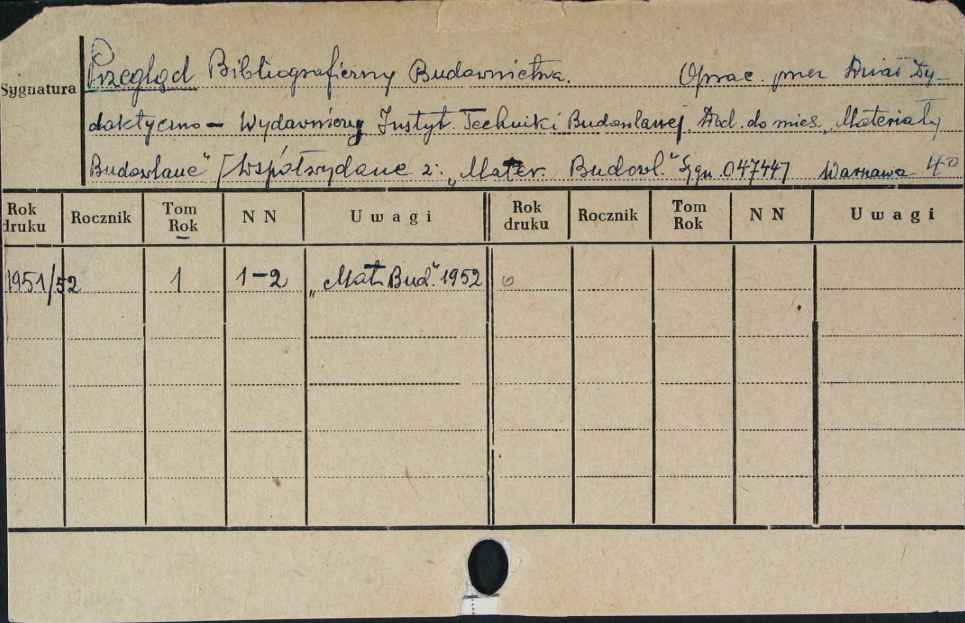 Sygnatura
Przegląd Bibliograficzny Budownictwa. Oprac. przez Dział Dy-
daktyczno - Wydawniczy Instyt. Techniki Budowlanej. Dod. do mies. „Materiały
Budowlane" [Współwydane z: „Mater. Budowl." Sygn. 047447] Warszawa 4°
Rok druku Rocznik Tom Rok N N Uwagi Rok druku Rocznik Tom Rok N N Uwagi
1951/52 1 1-2 „Mat. Bud." 1952